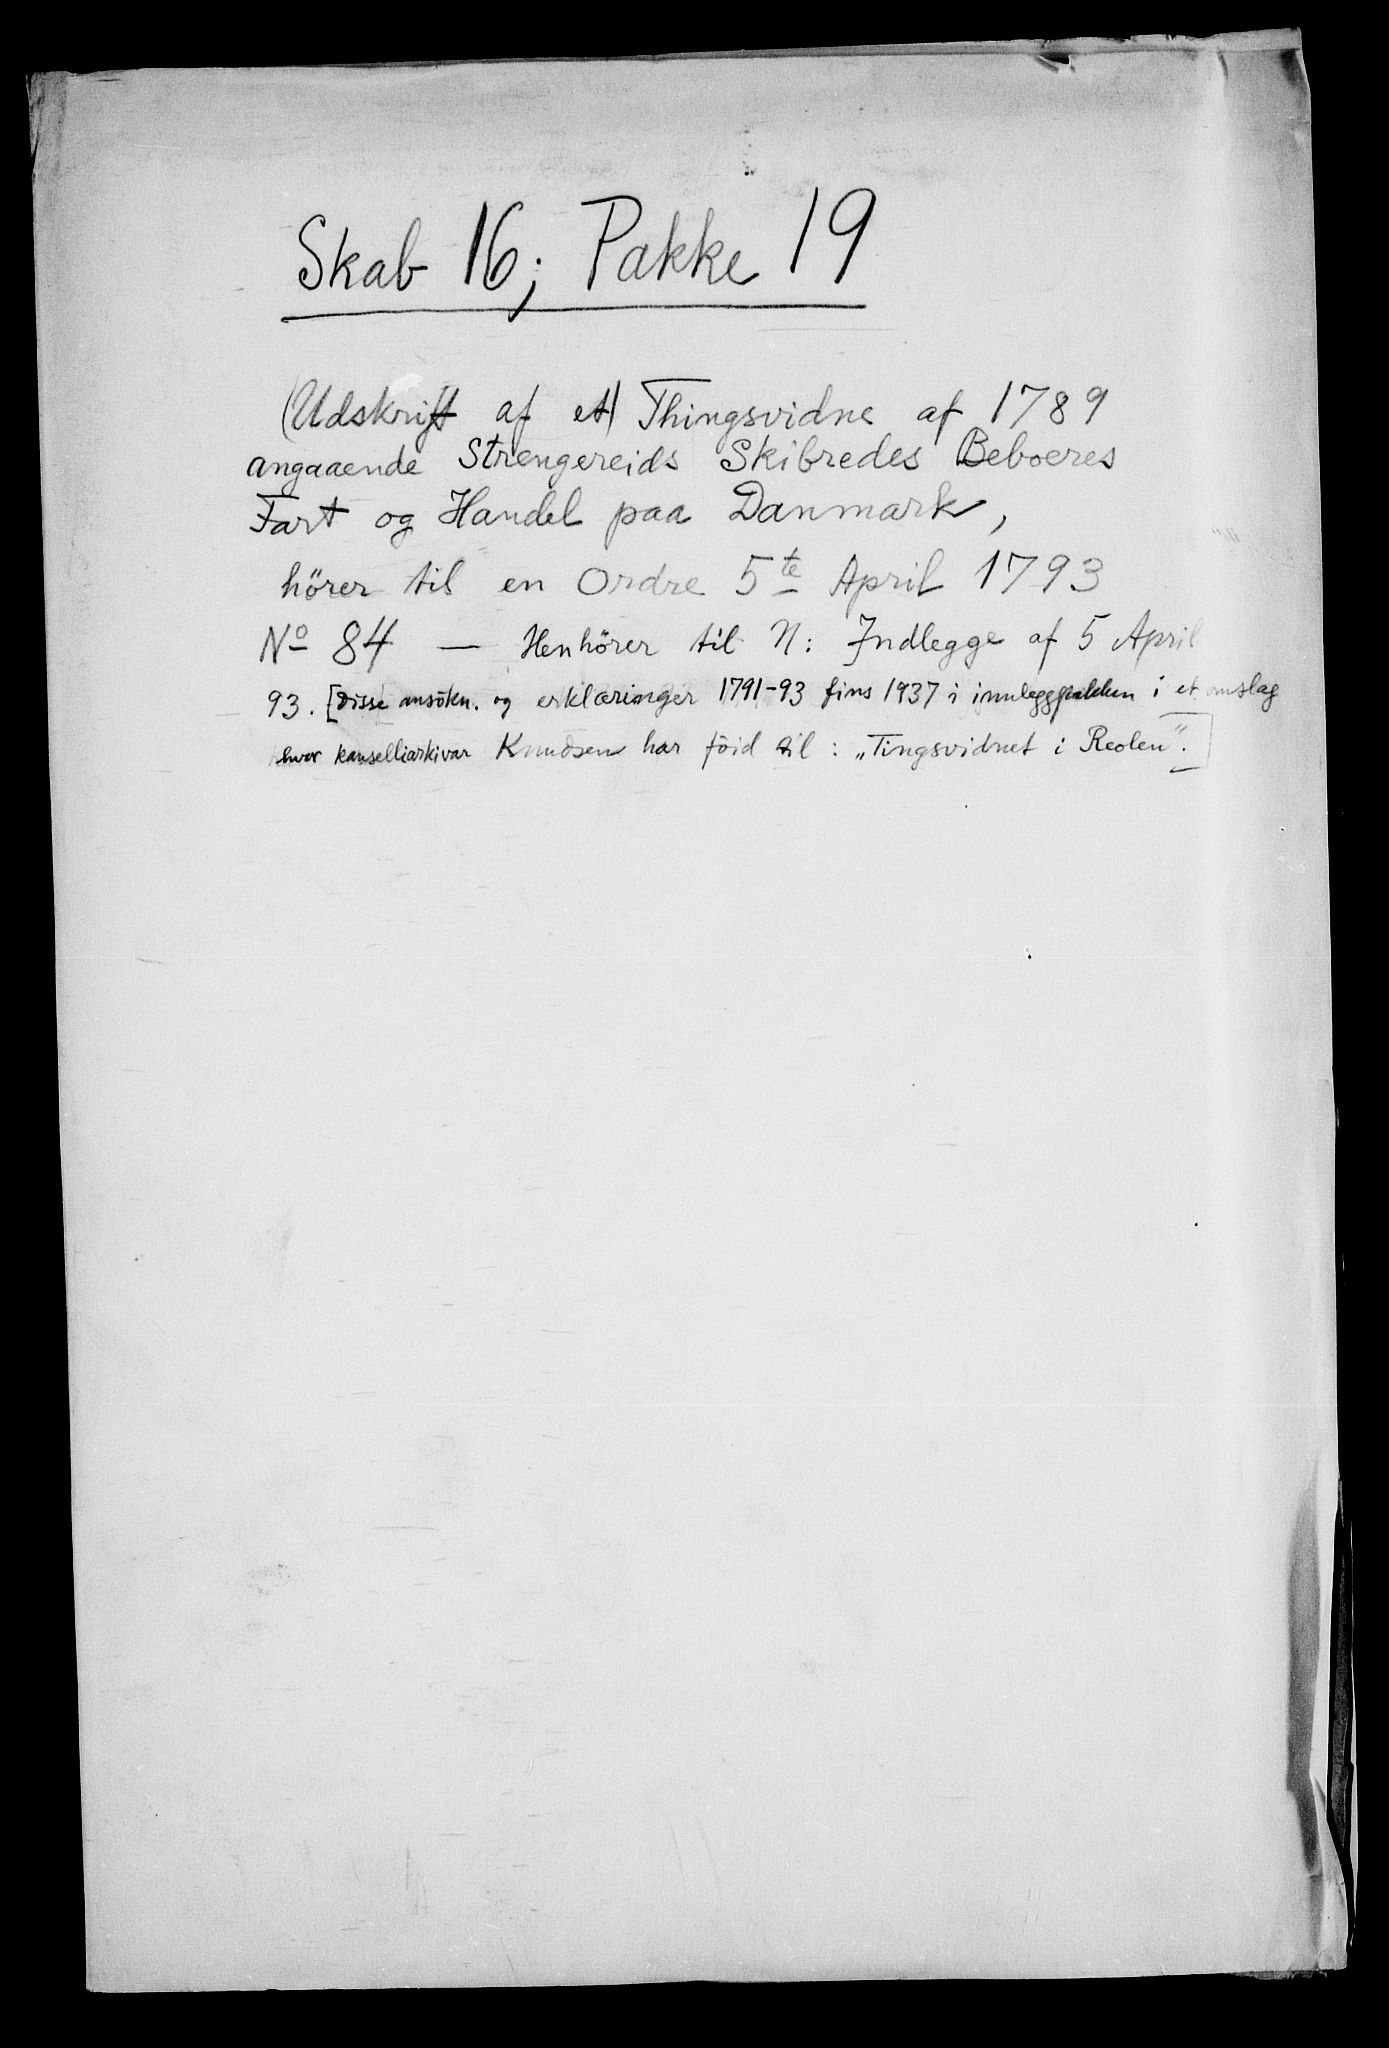 Skab 16; Pakke 19
(Udskrift af et) Thingsvidne af 1789
angaaende Strengereids Skibredes Beboeres
Fart og Handel paa Danmark,
hörer til en Ordre 5te April 1793
No 84 — Henhörer til N: Indlegge af 5 April
93. [Disse ansökn. og erklæringer 1791-93 fins 1937 i innleggpakken i et omslag
hvor kanselliarkivar Knudsen har föid til: „Tingsvidnet i Reolen“.]